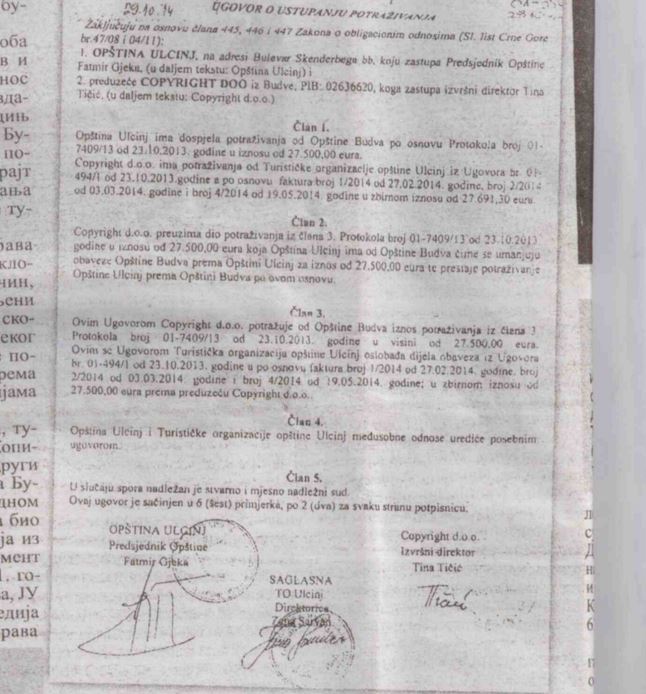 бу-
оба
в и
нос
Бу-
по-
рајт
ања
ту-
рава
чин,
њени
ско-
еког
по-
рема
ијама
ту-
други
Бу-
дном
био
ја из
мент
ЈУ
едија
рава
09.10.14
UGOVOR O USTUPANJU POTRAŽIVANJA
Zaključuju na osnovu člana 445, 446 i 447 Zakona o obligacionim odnosima (Sl. list Crne Gore
br.47/08 i 04/11):
1. OPŠTINA ULCINJ, na adresi Bulevar Skenderbega bb, koju zastupa Predsjednik Opštine
Fatmir Gjeka, (u daljem tekstu: Opština Ulcinj) i
2. preduzeće COPYRIGHT DOO iz Budve, PIB: 02636620, koga zastupa izvršni direktor Tina
Tičić, (u daljem tekstu: Copyright d.o.o.)
Član 1.
Opština Ulcinj ima dospjela potraživanja od Opštine Budva po osnovu Protokola broj 01-
7409/13 od 23.10.2013. godine u iznosu od 27.500,00 eura.
Copyright d.o.o. ima potraživanja od Turističke organizacije opštine Ulcinj iz Ugovora br. 01-
494/1 od 23.10.2013.godine a po osnovu faktura broj 1/2014 od 27.02.2014. godine, broj 2/2014
od 03.03.2014. godine i broj 4/2014 od 19.05.2014. godine u zbirnom iznosu od 27.691,30 eura.
Član 2.
Copyright d.o.o. preuzima dio potraživanja iz člana 3. Protokola broj 01-7409/13 od 23.10.2013.
godine u iznosu od 27.500,00 eura koja Opština Ulcinj ima od Opštine Budva čime se umanjuju
obaveze Opštine Budva prema Opštini Ulcinj za iznos od 27.500,00 eura te prestaje potraživanje
Opštine Ulcinj prema Opštini Budva po ovom osnovu.
Član 3.
Ovim Ugovorom Copyright d.o.o. potražuje od Opštine Budva iznos potraživanja iz člana 3
Protokola broj 01-7409/13 od 23.10.2013. godine u visini od 27.500,00 eura.
Ovim se Ugovorom Turistička organizacija opštine Ulcinj oslobađa dijela obaveza iz Ugovora
br. 01-494/1 od 23.10.2013. godine a po osnovu faktura broj 1/2014 od 27.02.2014. godine, broj
2/2014 od 03.03.2014. godine i broj 4/2014 od 19.05.2014. godine; u zbirnom iznosu od
27.500,00 eura prema preduzeću Copyright d.o.o..
Član 4.
Opština Ulcinj i Turističke organizacije opštine Ulcinj međusobne odnose urediće posebnim
ugovorom.
Član 5.
U slučaju spora nadležan je stvarno i mjesno nadležni sud.
Ovaj ugovor je sačinjen u 6 (šest) primjerka, po 2 (dva) za svaku stranu potpisnicu.
OPŠTINA ULCINJ
Predsjednik Opštine
Fatmir Gjeka
Copyright d.o.o.
Izvršni direktor
Tina Tičić
Tičić
SAGLASNA
TO Ulcinj
Direktorica